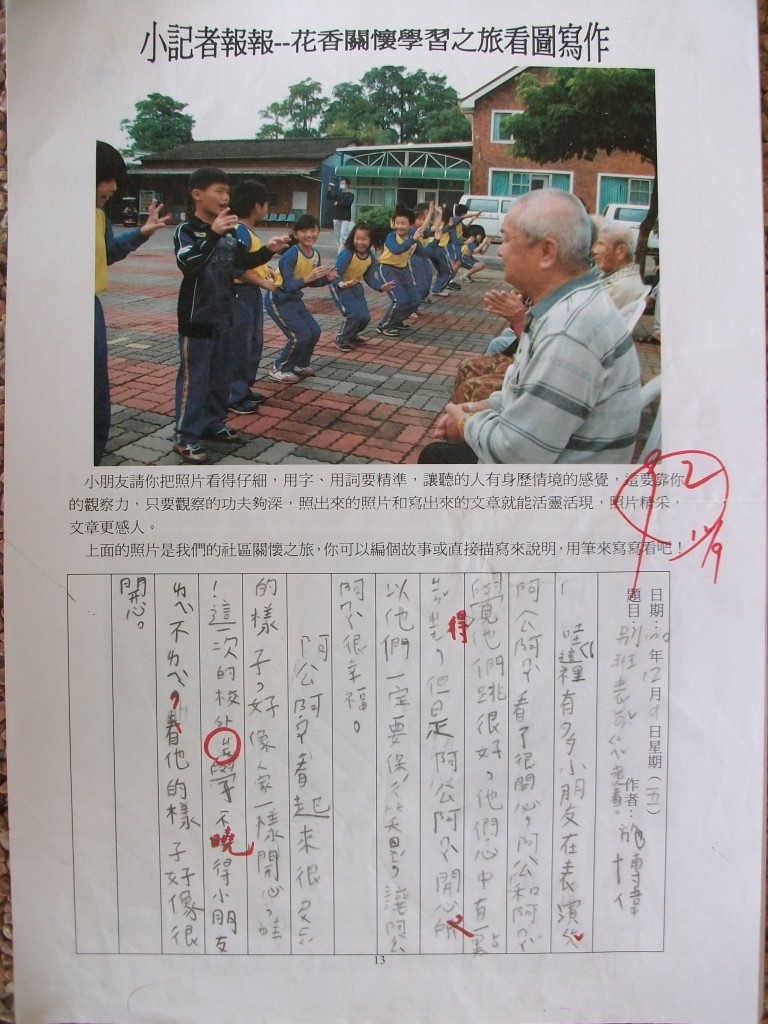 小記者報報--花香關懷學習之旅看圖寫作
小朋友請你把照片看得仔細，用字、用詞要精準，讓聽的人有身歷情境的感覺，這要靠你
的觀察力，只要觀察的功夫夠深，照出來的照片和寫出來的文章就能活靈活現，照片精采，
文章更感人。
上面的照片是我們的社區關懷之旅，你可以編個故事或直接描寫來說明，用筆來寫寫看吧！
92
11/9
日期：年12月9日星期（五）
題目：別班表 作者：施博偉
哇！這裡有ㄉㄨㄛ小朋友在表演
阿公阿ㄇㄚˋ看了很開心，阿公和阿ㄇㄚˋ
覺得他們跳很好，他們心中有一點
但是阿公阿ㄇㄚˋ開心
以他們一定要保，讓阿公
阿ㄇㄚˋ很幸福。
阿公阿ㄇㄚˋ看起來很
的樣子，好像人家一樣開心，哇
！這一次的校外學不曉得小朋友
ㄌㄟˋ不ㄌㄟˋ，看他的樣子好像很
開心。
13